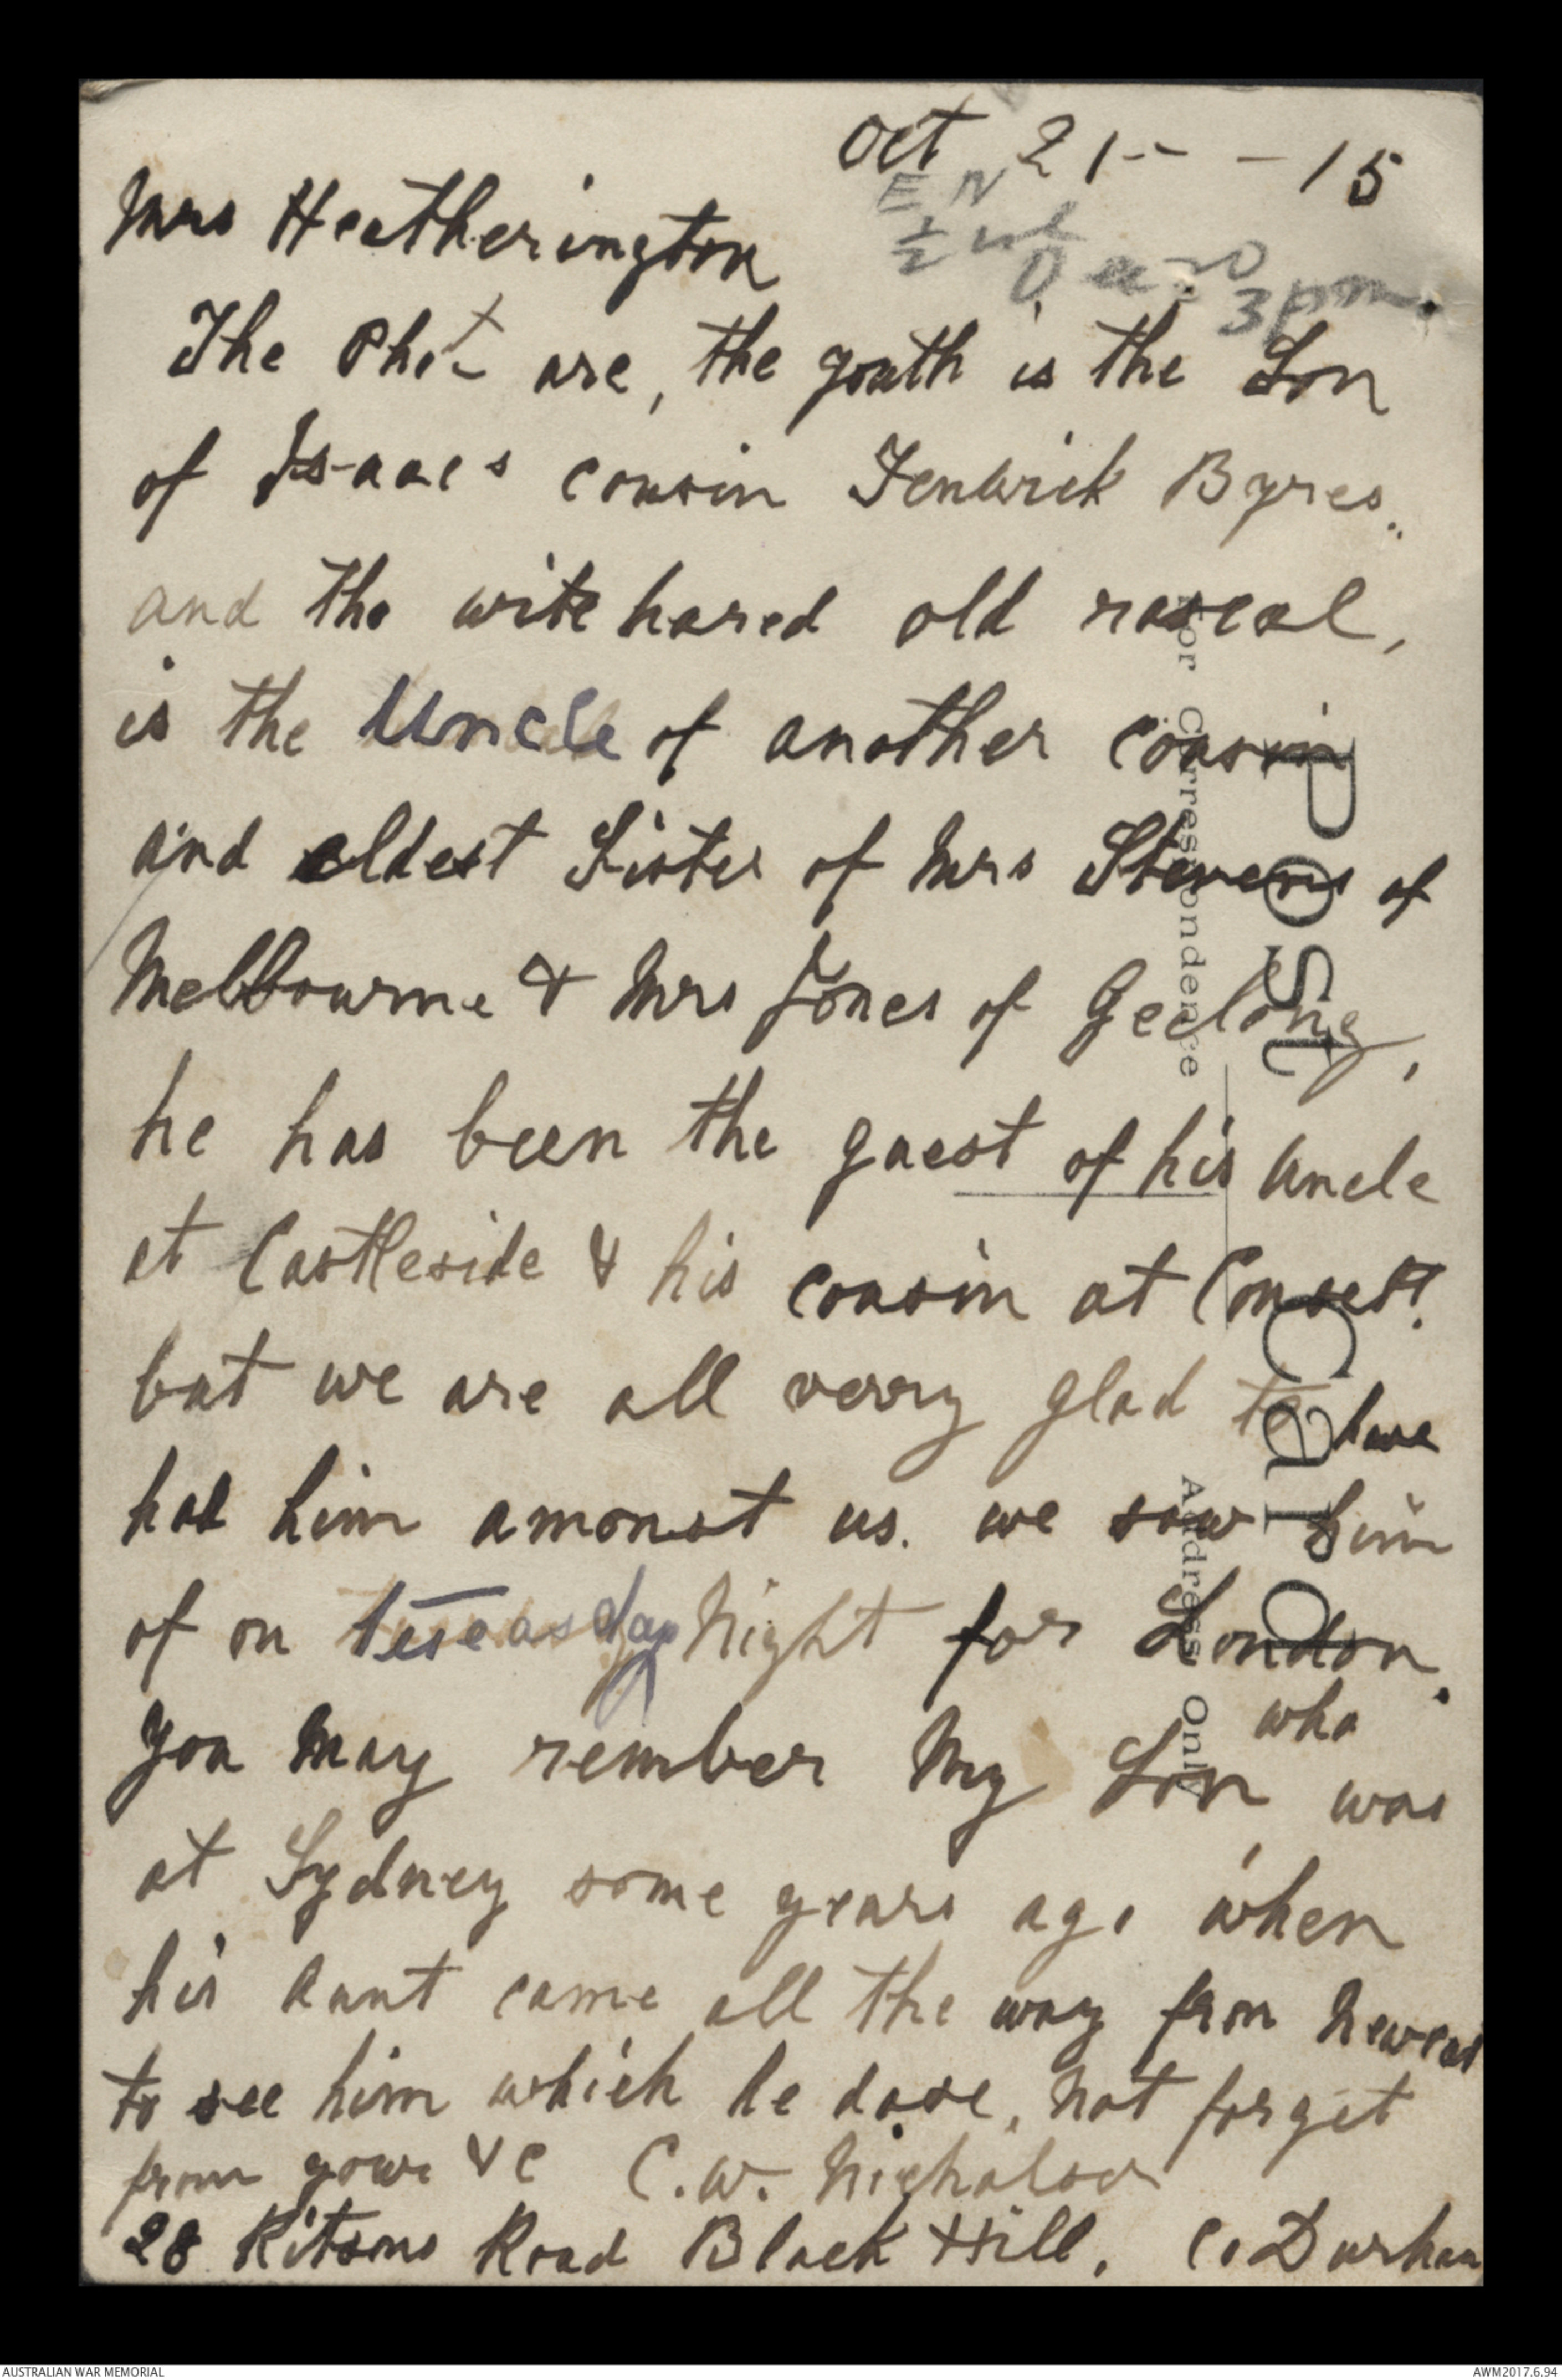 Oct 21-- -15
E N
½ 
3pm.
Mrs Heatherington
The Phot are, the youth is the Son
of Isaacs cousin Fenwick Byres..
and the wite hared old rascal,
is the Uncle of another cousin
and eldest Sister of Mrs Stevens of
Melbourne & Mrs Jones of Geelong,
he has been the guest of his uncle
at Castleside & his cousin at Consett.
but we are all verry glad to have
had him amonst us. we saw him
of on teseasday Night for London.
you may rember My Son who was
at Sydney some years ago when
his Aunt came all the way from Newcas
to see him which he dose, not forget
from yours &c C.W. Nicholson
28 Kitsons Road Black Hill. Co Durham
Post Card
For Correspondence
Address Only
AUSTRALIAN WAR MEMORIAL
AWM2017.6.94